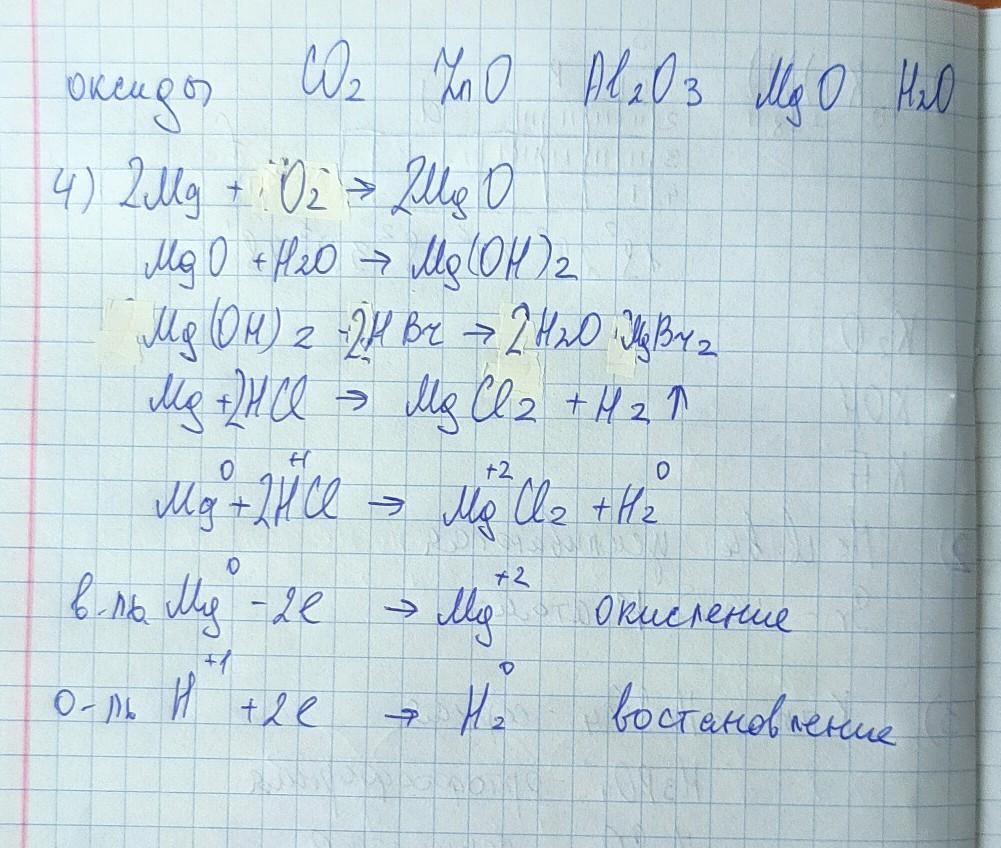 оксиды CO2 ZnO Al2O3 MgO H2O
4) 2Mg + O2 → 2MgO
MgO + H2O → Mg(OH)2
Mg(OH)2 + 2HBr → 2H2O MgBr2
Mg + 2HCl → MgCl2 + H2 ↑
Mg⁰ + 2H⁺¹Cl → Mg⁺²Cl2 + H2⁰
в-ль Mg⁰ - 2e → Mg⁺² окисление
о-ль H⁺¹ + 2e → H2⁰ востановление